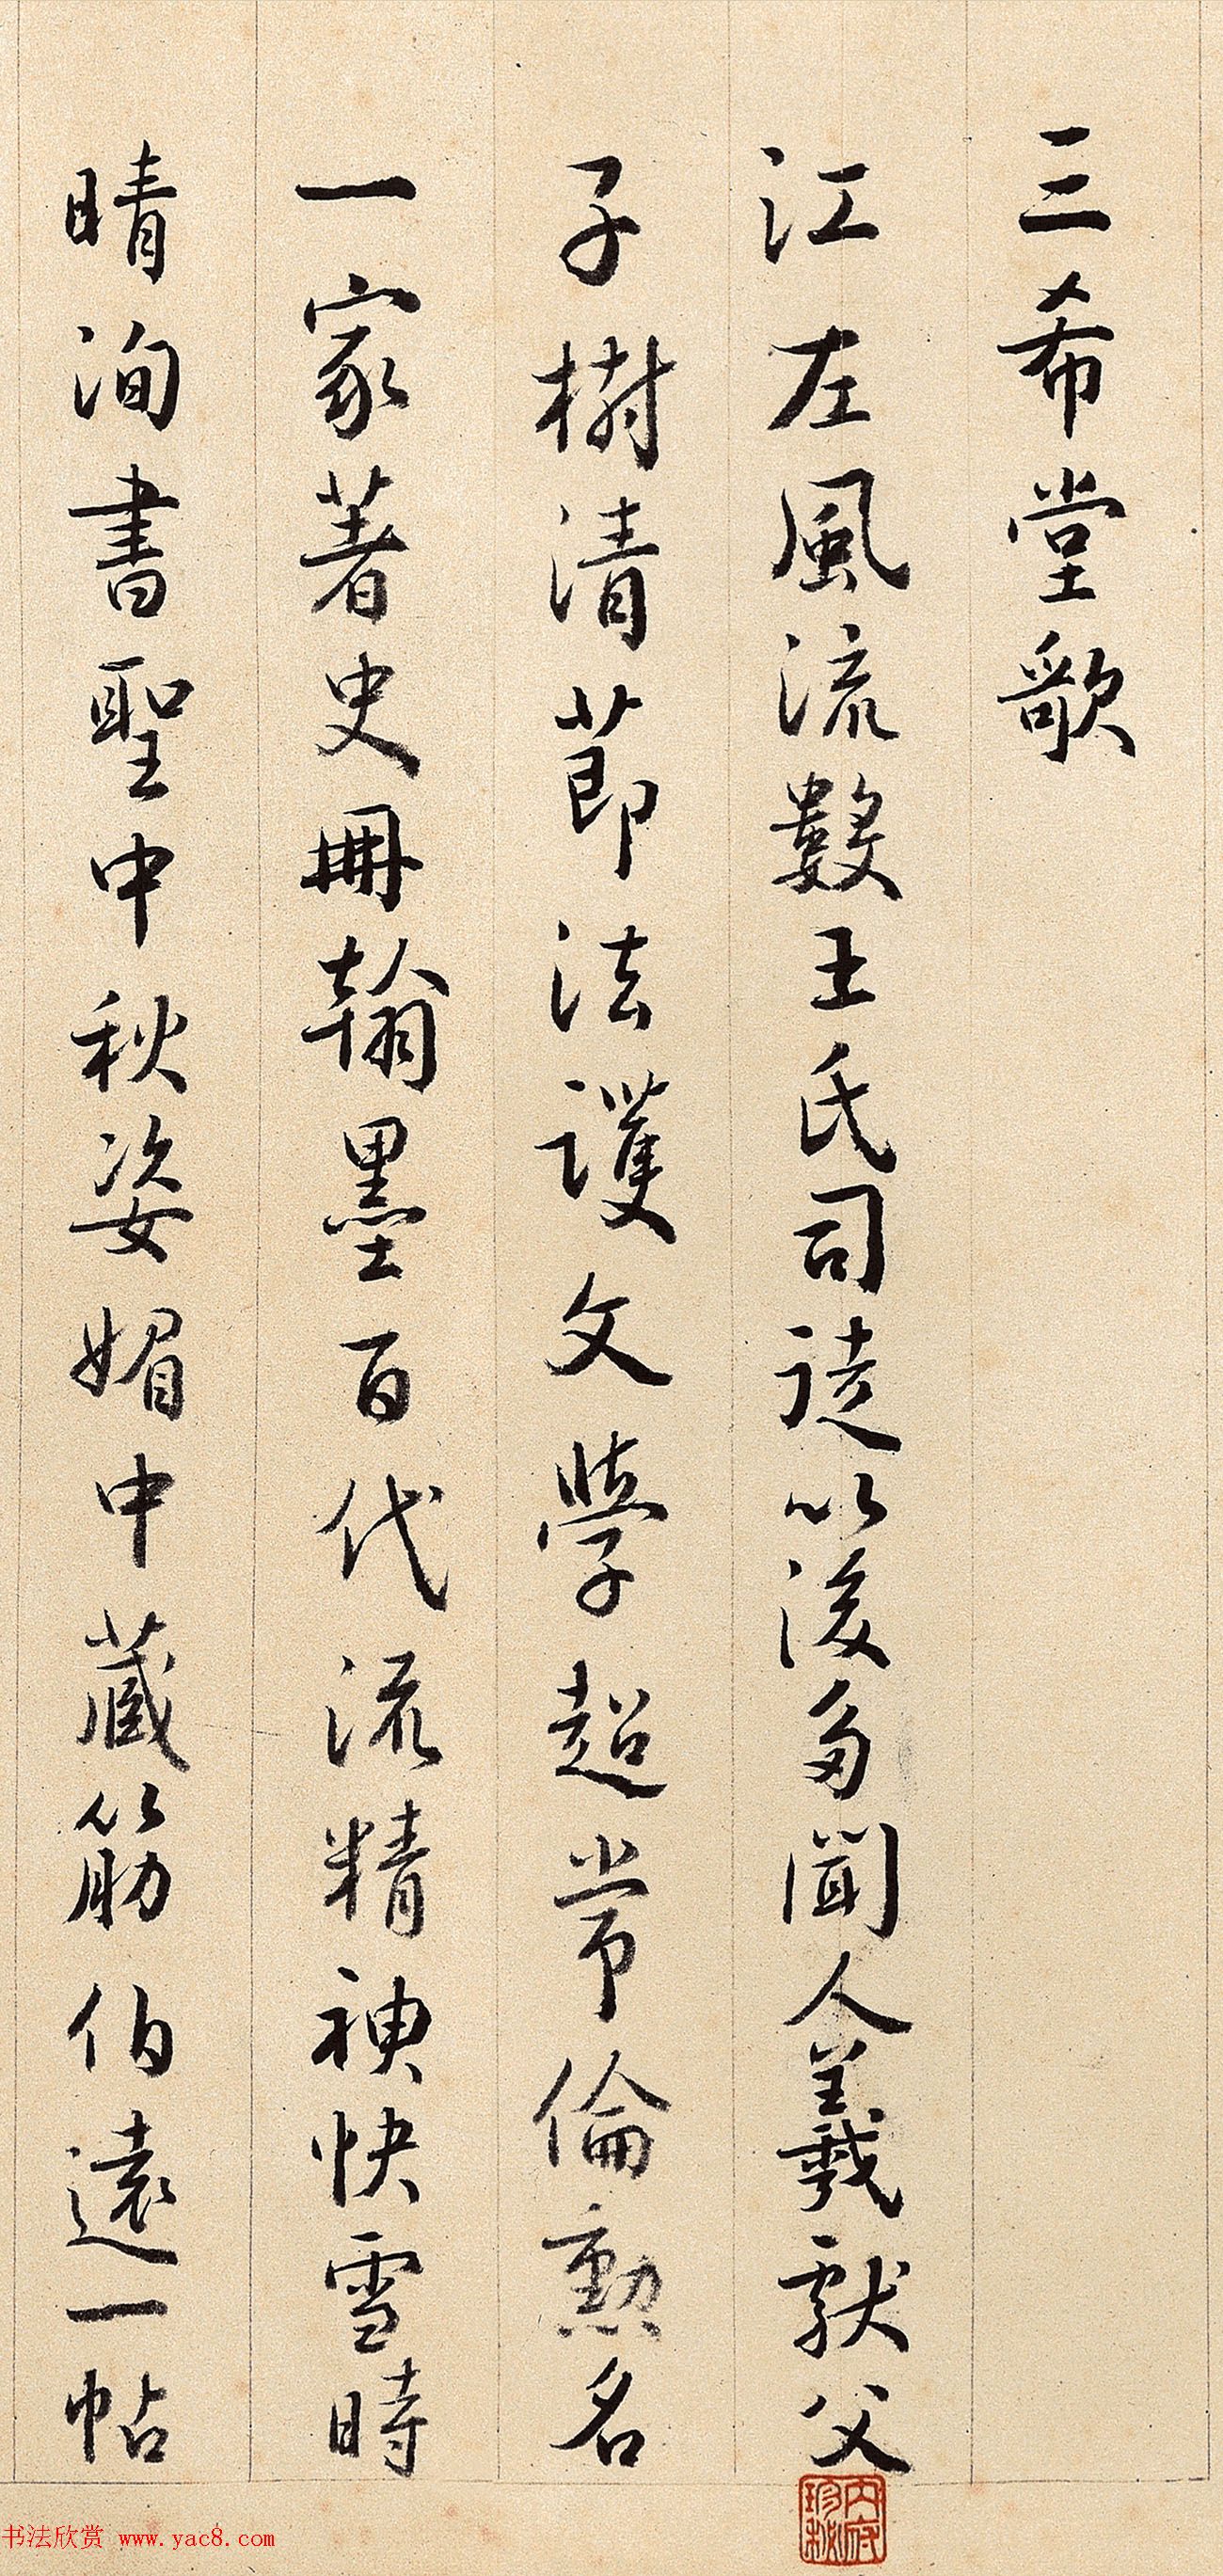 三希堂歌
江左風流數王氏司徒以後多聞人羲獻父
子樹清節法護文學超常倫勲名
一家著史冊翰墨百代流精神快雪時
晴洵書聖中秋姿媚中藏筋伯遠一帖
内府珍秘
书法欣赏 www.yac8.com